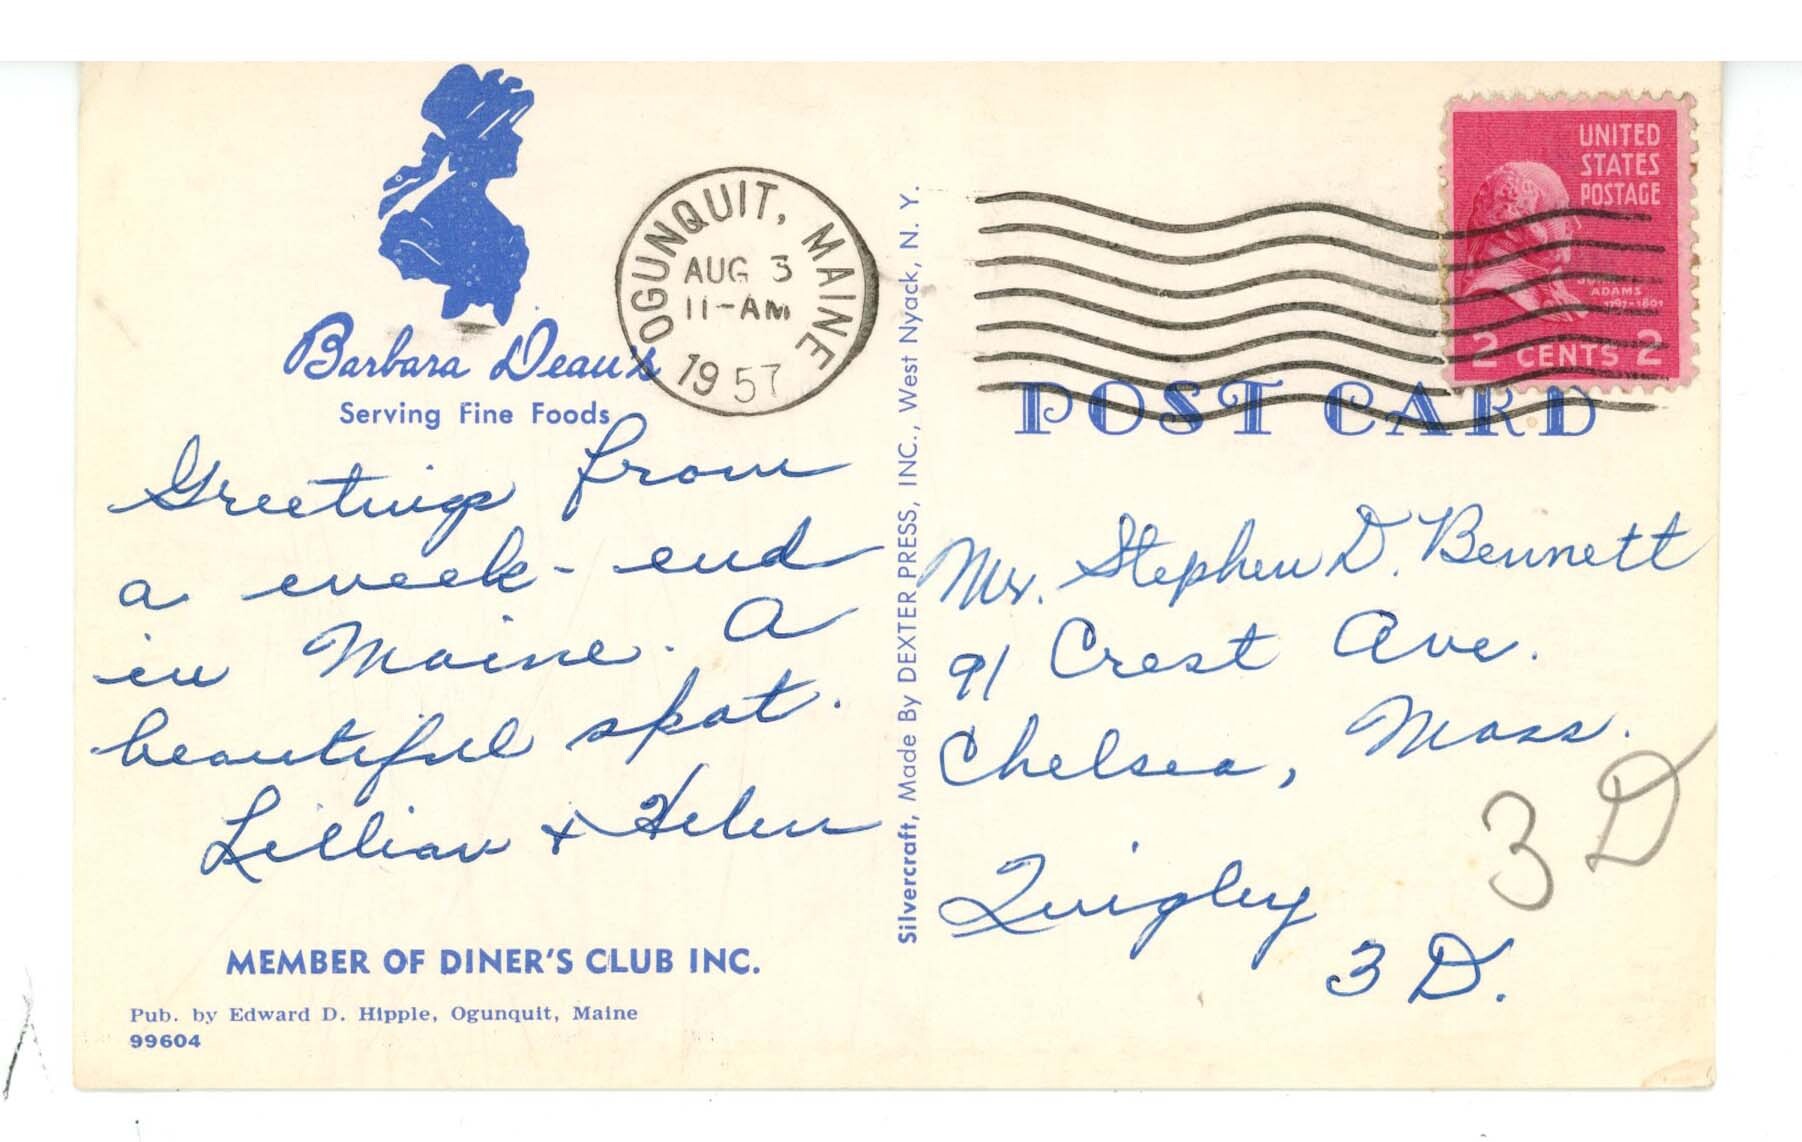 Barbara Dean's
Serving Fine Foods
Greetings from
a week-end
in Maine. A
beautiful spot.
Lillian + Helen
MEMBER OF DINER'S CLUB INC.
Pub. by Edward D. Hipple, Ogunquit, Maine
99604
OGUNQUIT, MAINE
AUG 3
11-AM
1957
Silvercraft, Made By DEXTER PRESS, INC., West Nyack, N. Y.
UNITED
STATES
POSTAGE
JOHN
ADAMS
1797-1801
2 CENTS 2
POST CARD
Mr. Stephen D. Bennett
91 Crest Ave.
Chelsea, Mass.
3 D
Quigley
3 D.